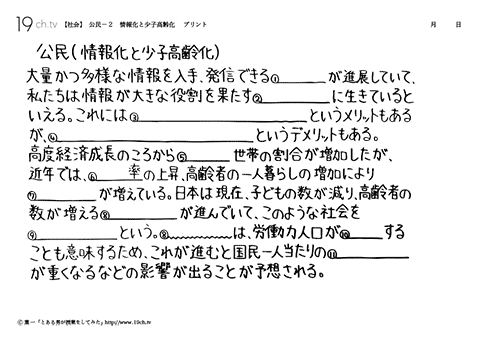 19ch.tv 【社会】 公民－2 情報化と少子高齢化 プリント 月 日
公民(情報化と少子高齢化)
大量かつ多様な情報を入手、発信できる①______が進展していて、
私たちは情報が大きな役割を果たす②______に生きていると
いえる。これには③______________というメリットもある
が、④________________というデメリットもある。
高度経済成長のころから⑤______世帯の割合が増加したが、
近年では、⑥____率の上昇、高齢者の一人暮らしの増加により
⑦______が増えている。日本は現在、子どもの数が減り、高齢者の
数が増える⑧______が進んでいて、このような社会を
⑨________という。⑧______は、労働力人口が⑩____する
ことも意味するため、これが進むと国民一人当たりの⑪______
が重くなるなどの影響が出ることが予想される。
© 葉一「とある男が授業をしてみた」http://www.19ch.tv